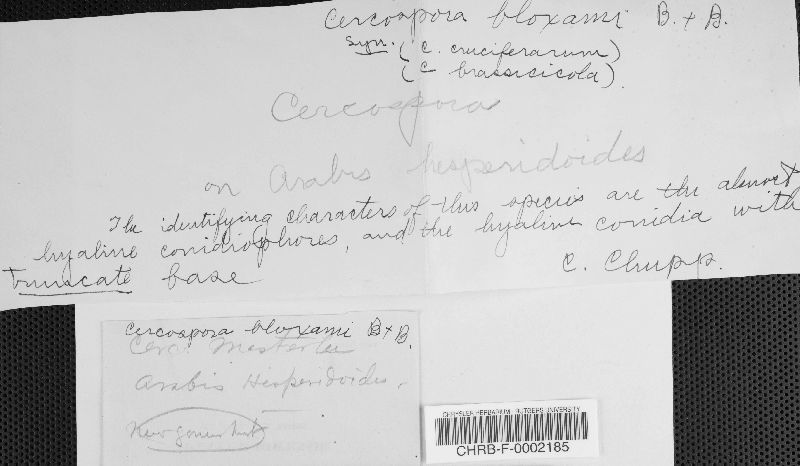 Cercospora bloxami B. + B.
Syn. (C. cruciferarum)
(C brassicicola)
Cercospora
on Arabis hesperidoides
The identifying characters of this species are the almost
hyaline conidiophores, and the hyaline conidia with
truncate base
C. Chupp.
Cercospora bloxami B + B.
Arabis Hesperidoides.
New genus host
CHRYSLER HERBARIUM - RUTGERS UNIVERSITY
CHRB-F-0002185